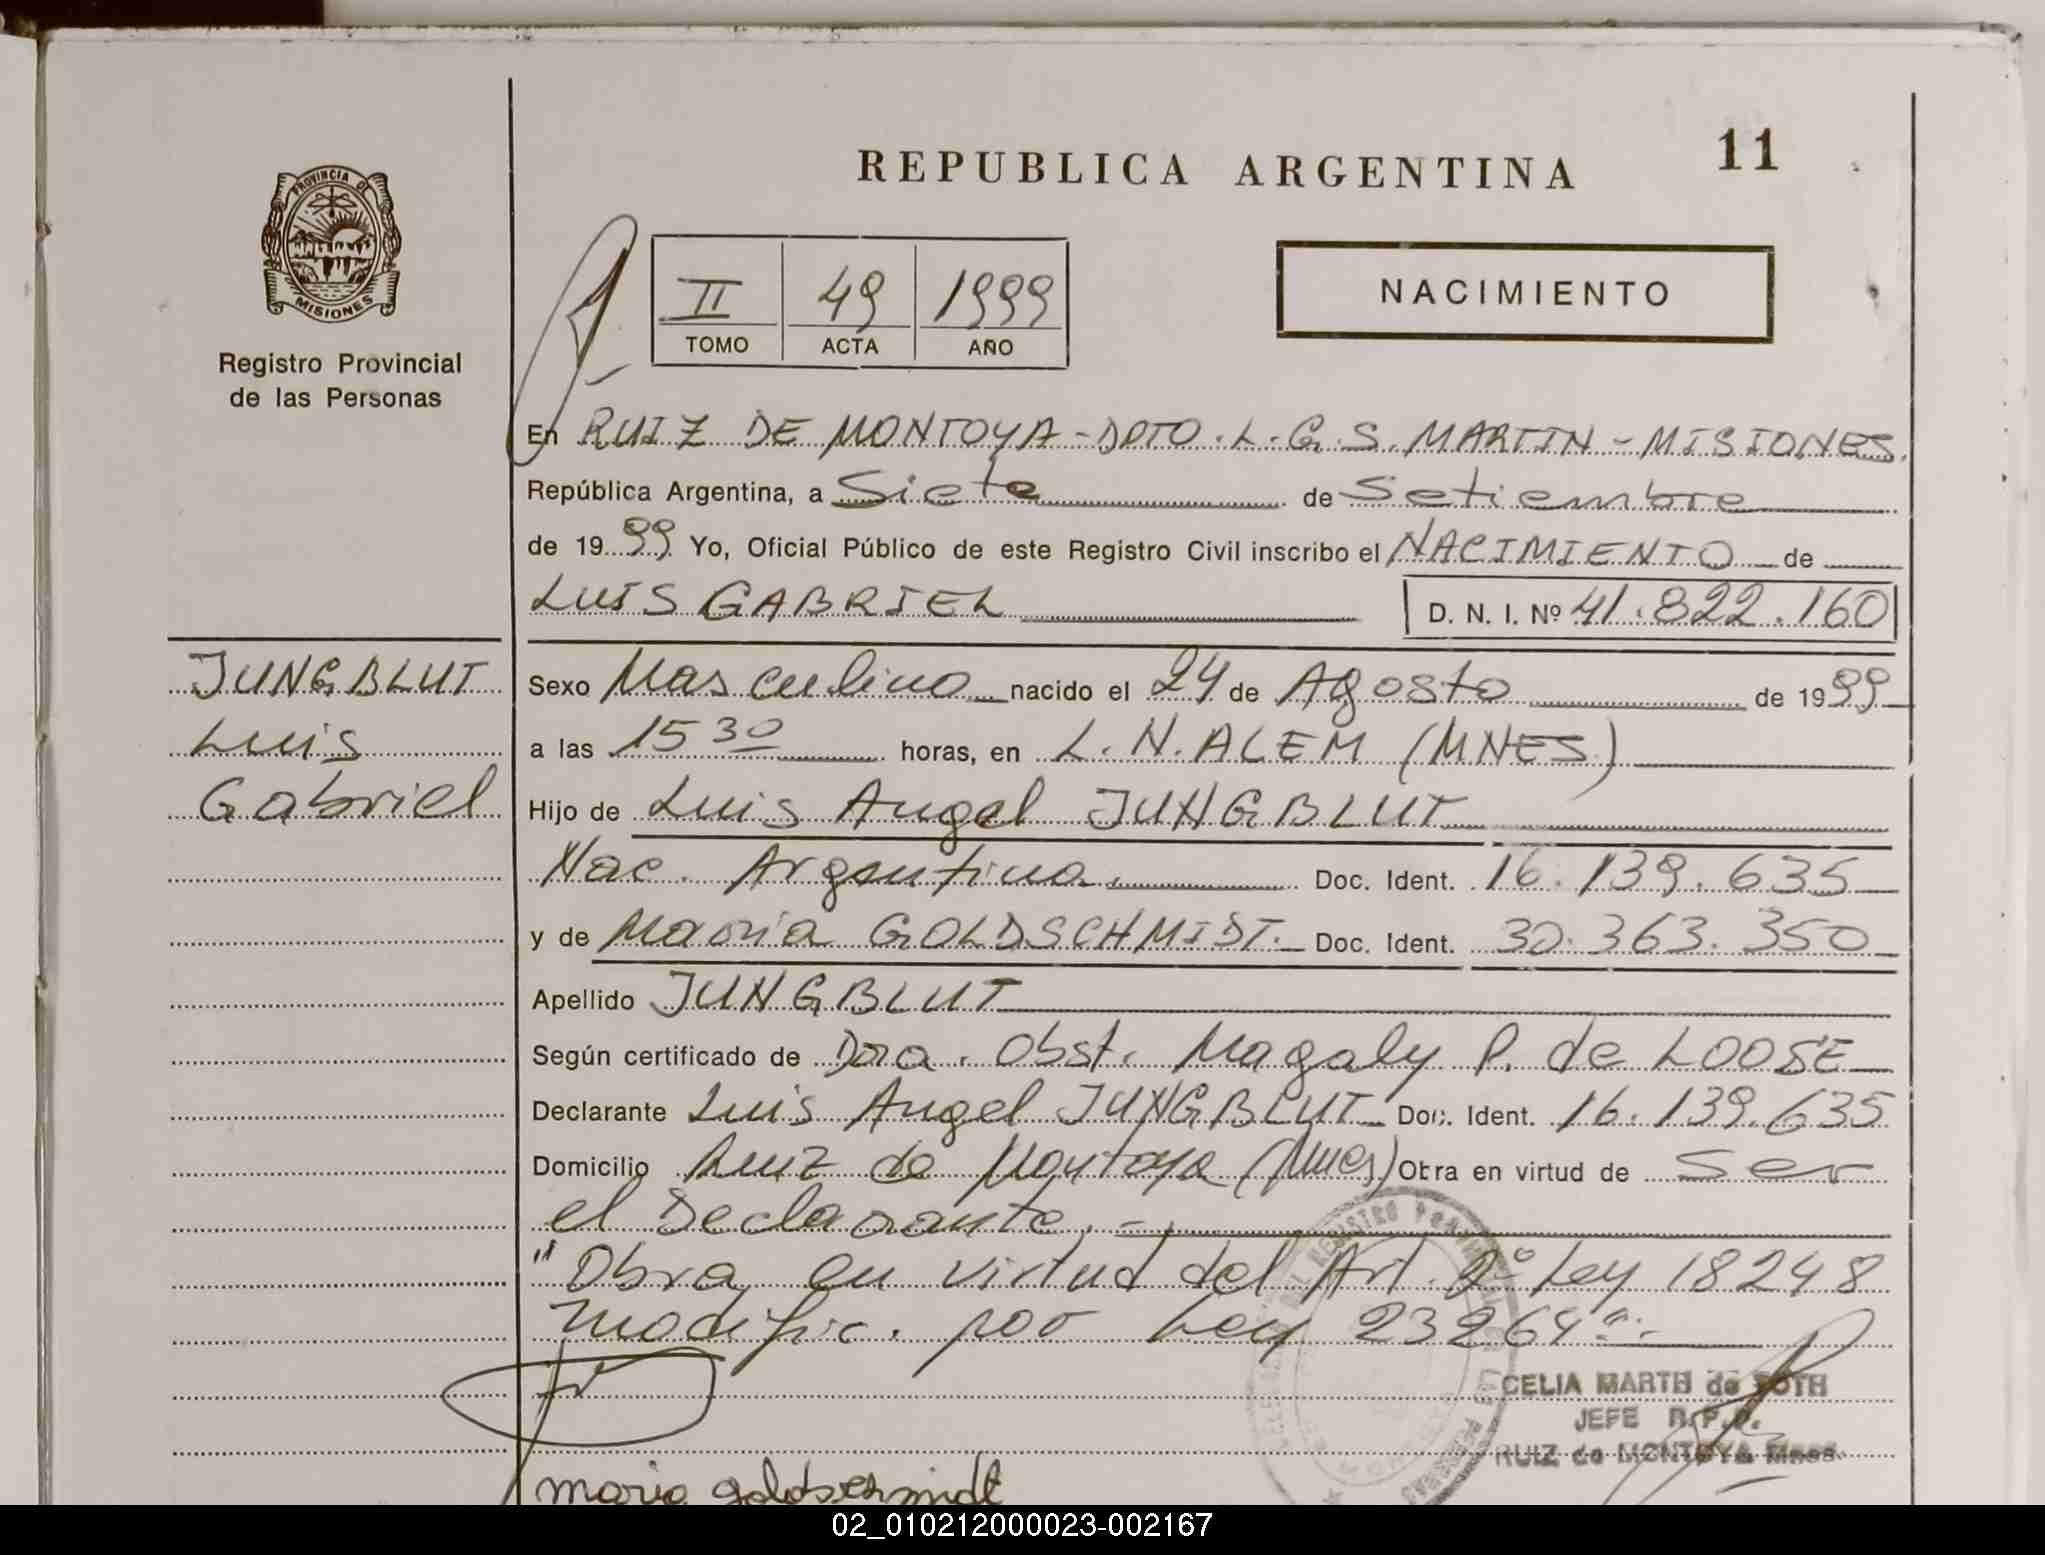 REPUBLICA ARGENTINA
11
PROVINCIA DE
MISIONES
Registro Provincial
de las Personas
II 49 1999
TOMO ACTA AÑO
NACIMIENTO
En RUIZ DE MONTOYA - DPTO. L. G. S. MARTIN - MISIONES.
República Argentina, a Siete de Setiembre
de 1999 Yo, Oficial Público de este Registro Civil inscribo el NACIMIENTO de
LUIS GABRIEL D. N. I. Nº 41.822.160
JUNGBLUT
Luis
Gabriel
Sexo Masculino nacido el 24 de Agosto de 1999
a las 15 30 horas, en L. N. ALEM (MNES)
Hijo de Luis Angel JUNGBLUT
Nac. Argentina. Doc. Ident. 16.139.635
y de Maria GOLDSCHMIDT. Doc. Ident. 30.363.350
Apellido JUNGBLUT
Según certificado de Dra. Obst. Magaly P. de LOOSE
Declarante Luis Angel JUNGBLUT Doc. Ident. 16.139.635
Domicilio Ruiz de Montoya (Mnes) Obra en virtud de Ser
el Declarante. -
"Obra en virtud del Art. 2º Ley 18248
modific. por Ley 23264".-
CELIA MARTH de
JEFE R.P.P.
RUIZ de MONTOYA Mnes.
maria goldschmidt
02_010212000023-002167